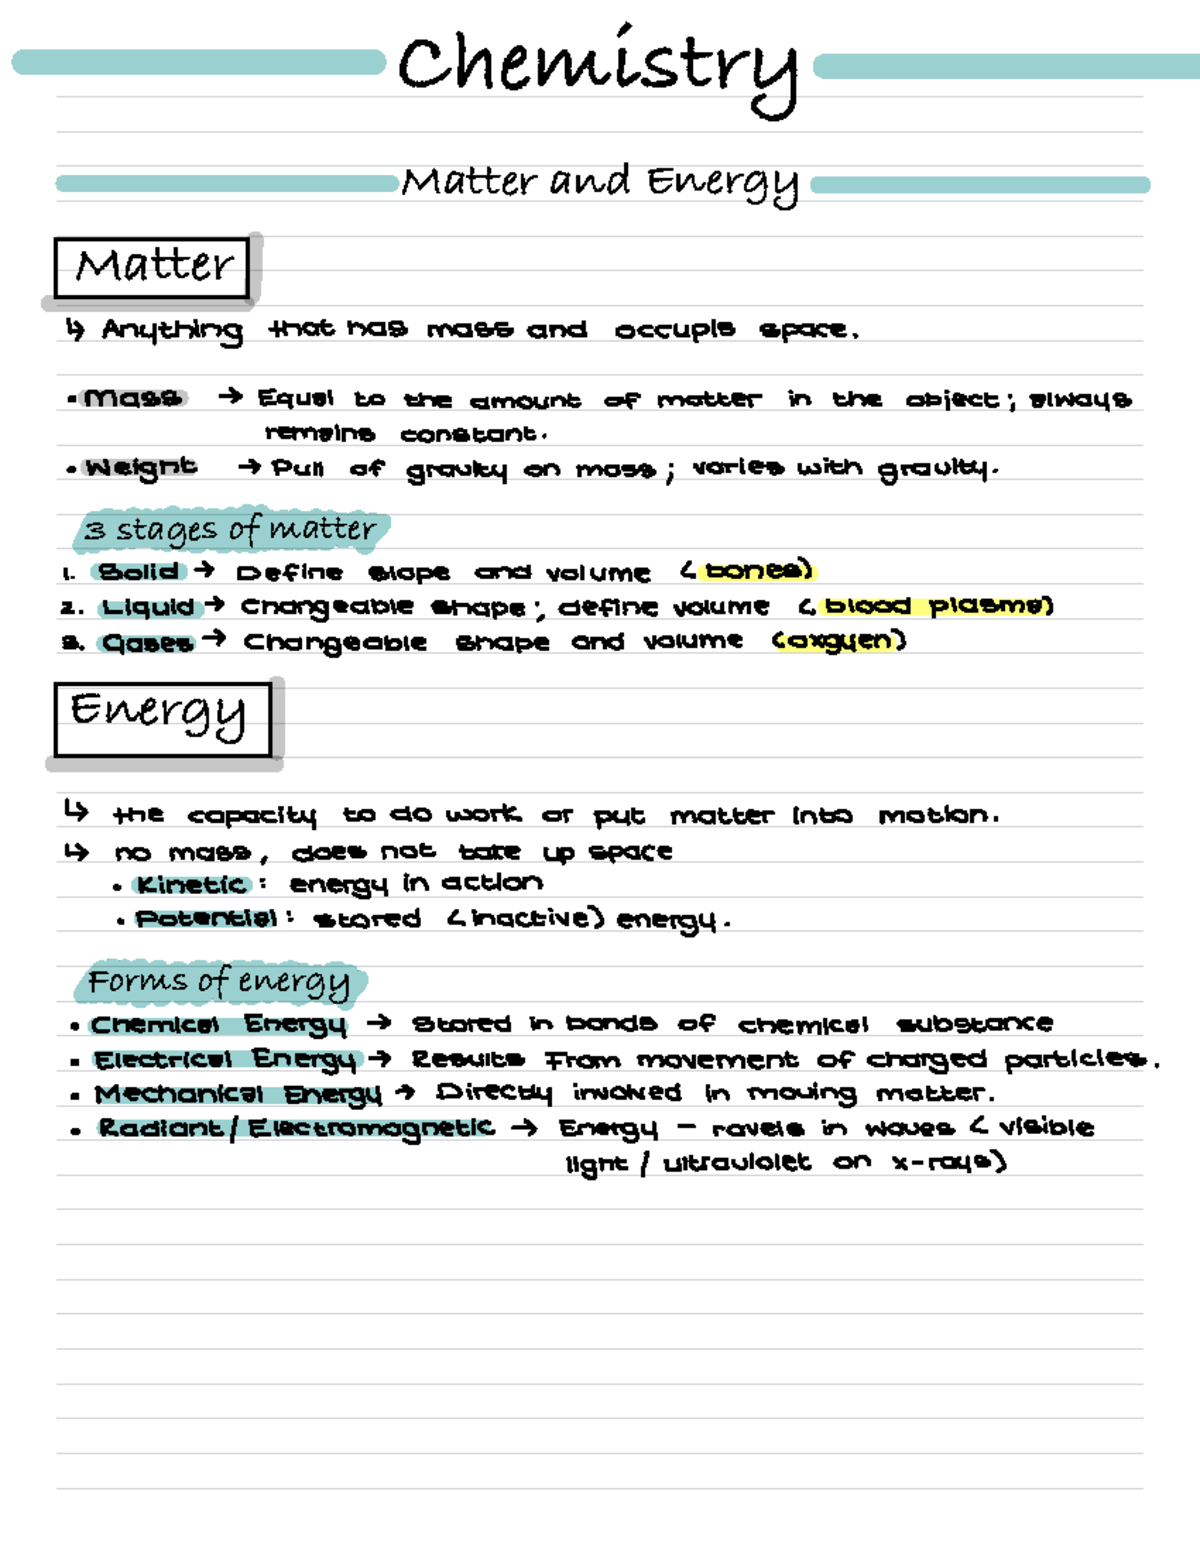 Chemistry
Matter and Energy
Matter
↳ Anything that has mass and occupis space.
• Mass → Equal to the amount of matter in the object; always
remains constant.
• Weight → Pull of gravity on mass; varies with gravity.
3 stages of matter
1. Solid → Define slape and volume (bones)
2. Liquid → Changeable shape; define volume (blood plasma)
3. Gases → Changeable shape and volume (oxgyen)
Energy
↳ the capacity to do work or put matter into motion.
↳ no mass, does not take up space
• Kinetic: energy in action
• Potential: stored (inactive) energy.
Forms of energy
• Chemical Energy → Stored in bonds of chemical substance
• Electrical Energy → Results From movement of charged particles.
• Mechanical Energy → Directly involved in moving matter.
• Radiant/Electromagnetic → Energy - ravels in waves (visible
light / ultraviolet on x-rays)